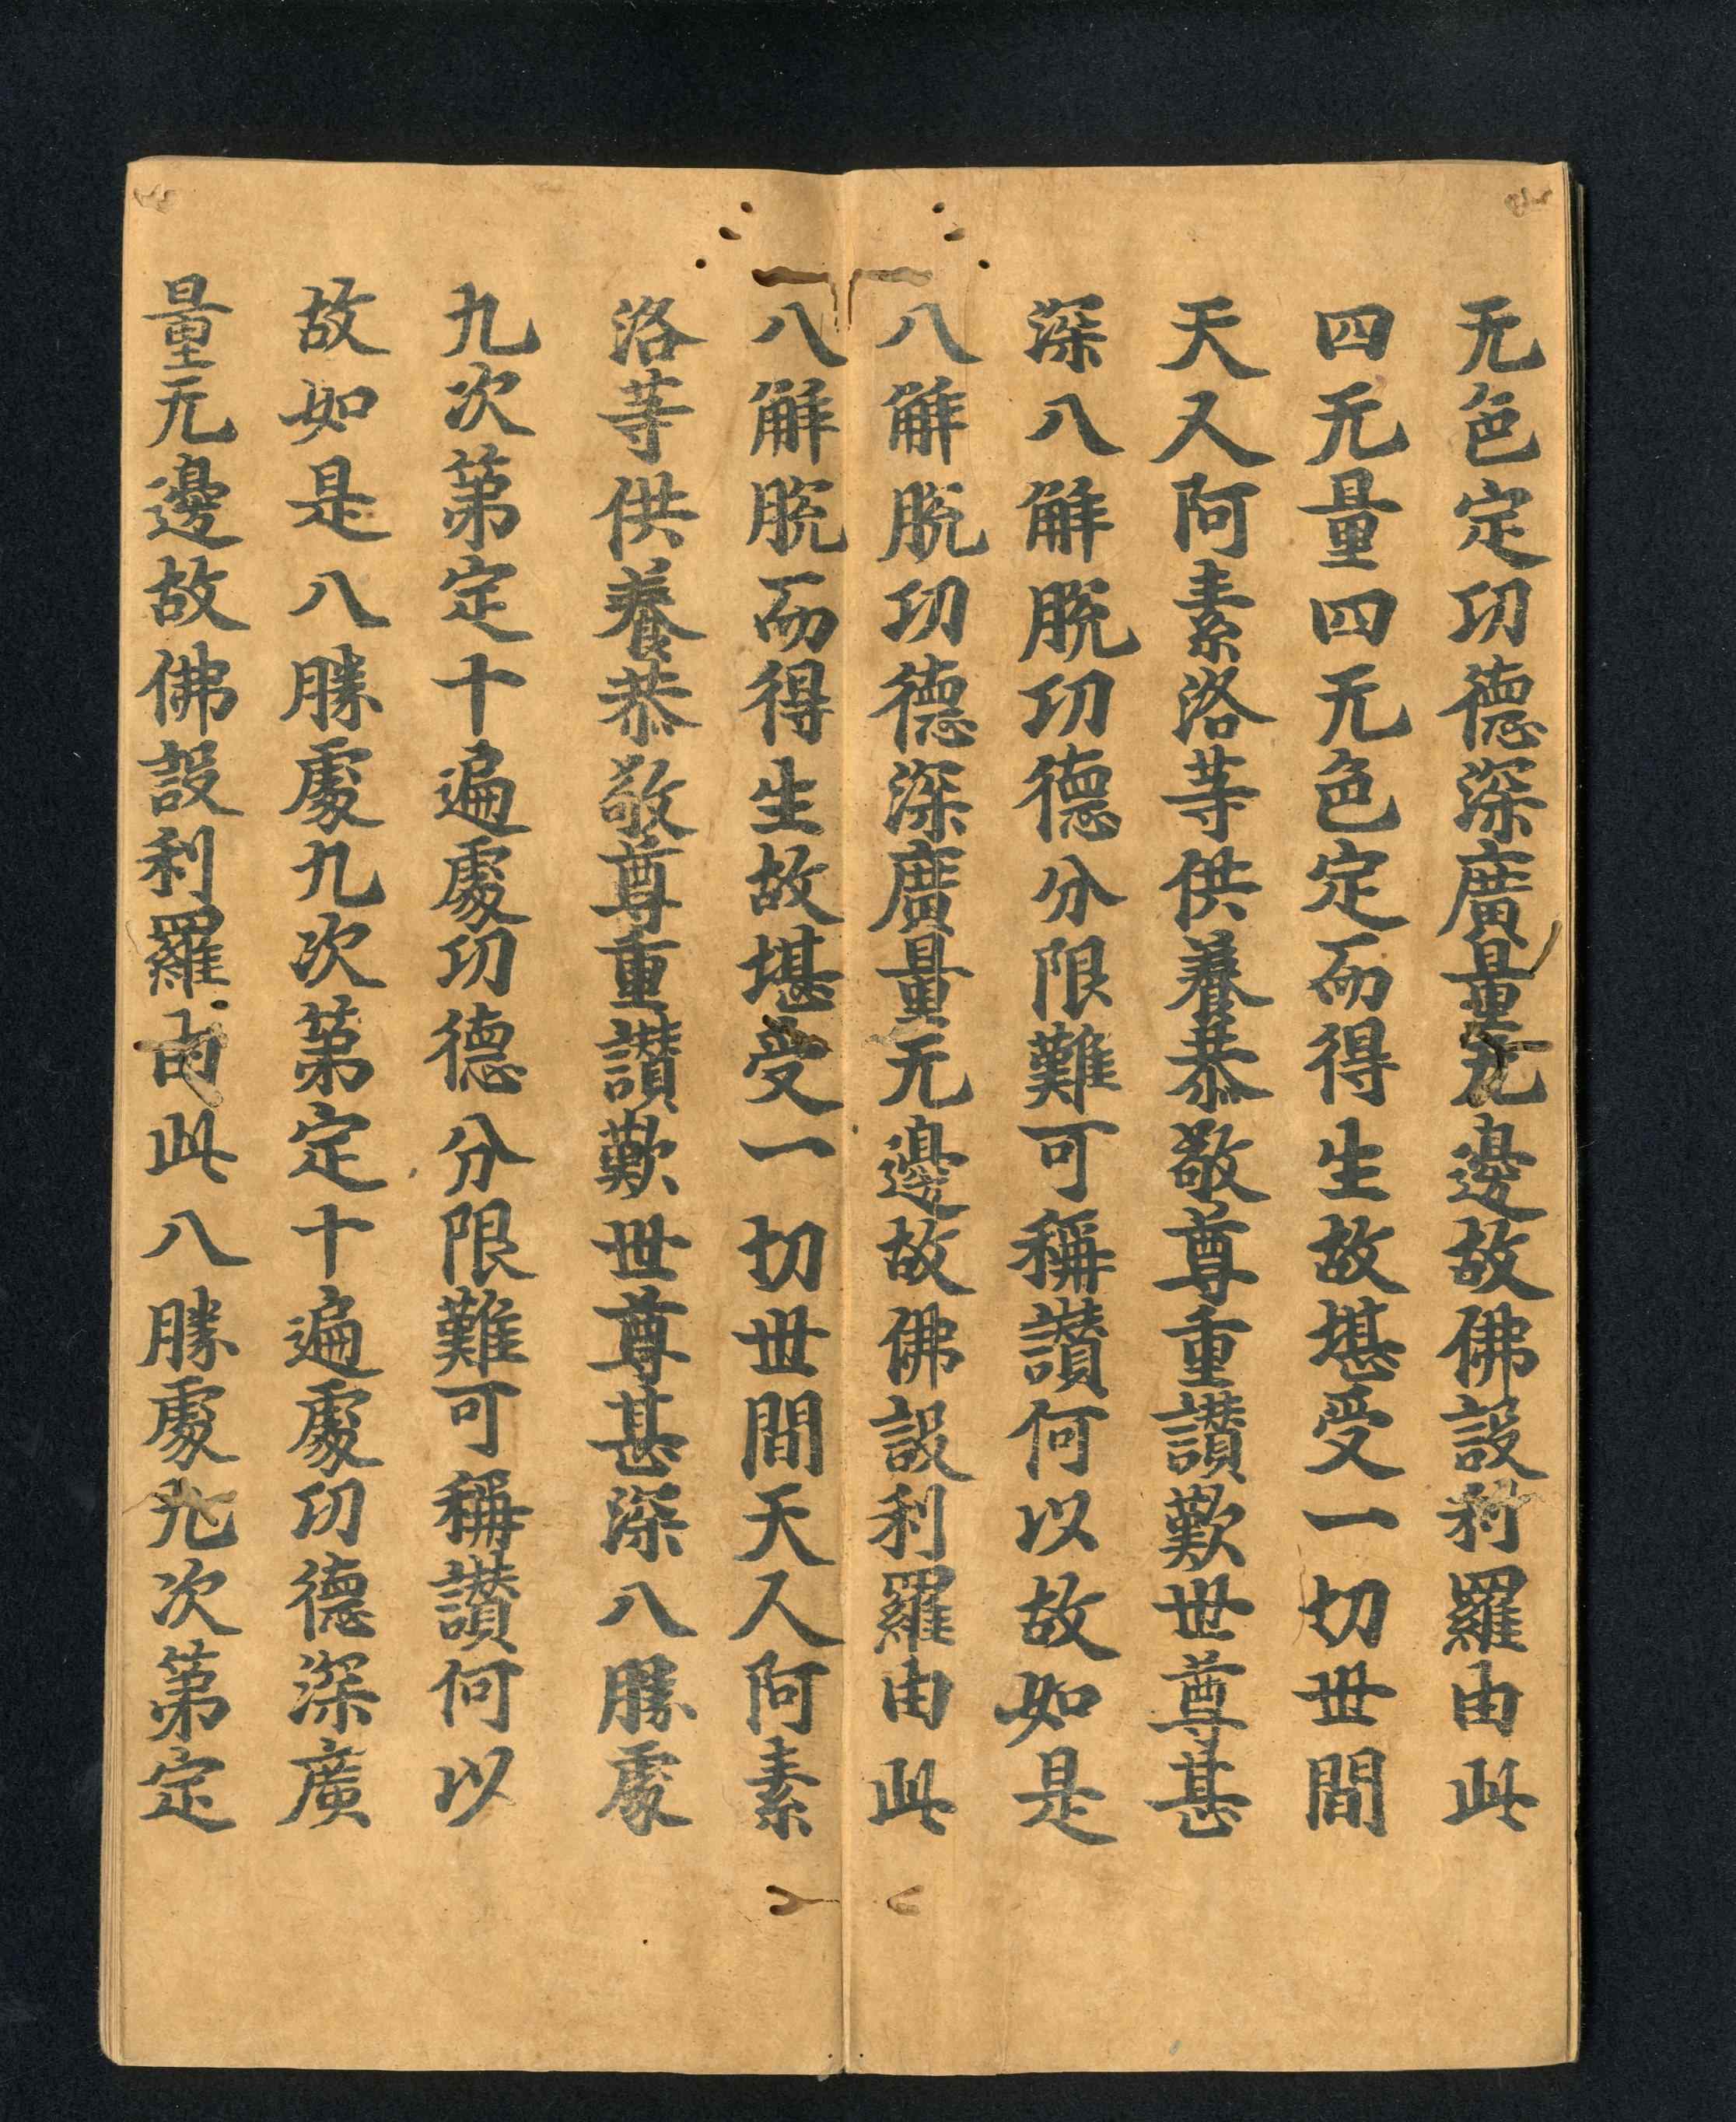 无色定功德深廣量无邊故佛設利羅由此
四无量四无色定而得生故堪受一切世間
天人阿素洛等供養恭敬尊重讃歎世尊甚
深八解脫功德分限難可稱讃何以故如是
八解脫功德深廣量无邊故佛設利羅由此
八解脫而得生故堪受一切世間天人阿素
洛等供養恭敬尊重讃歎世尊甚深八勝處
九次第定十遍處功德分限難可稱讃何以
故如是八勝處九次第定十遍處功德深廣
量无邊故佛設利羅由此八勝處九次第定